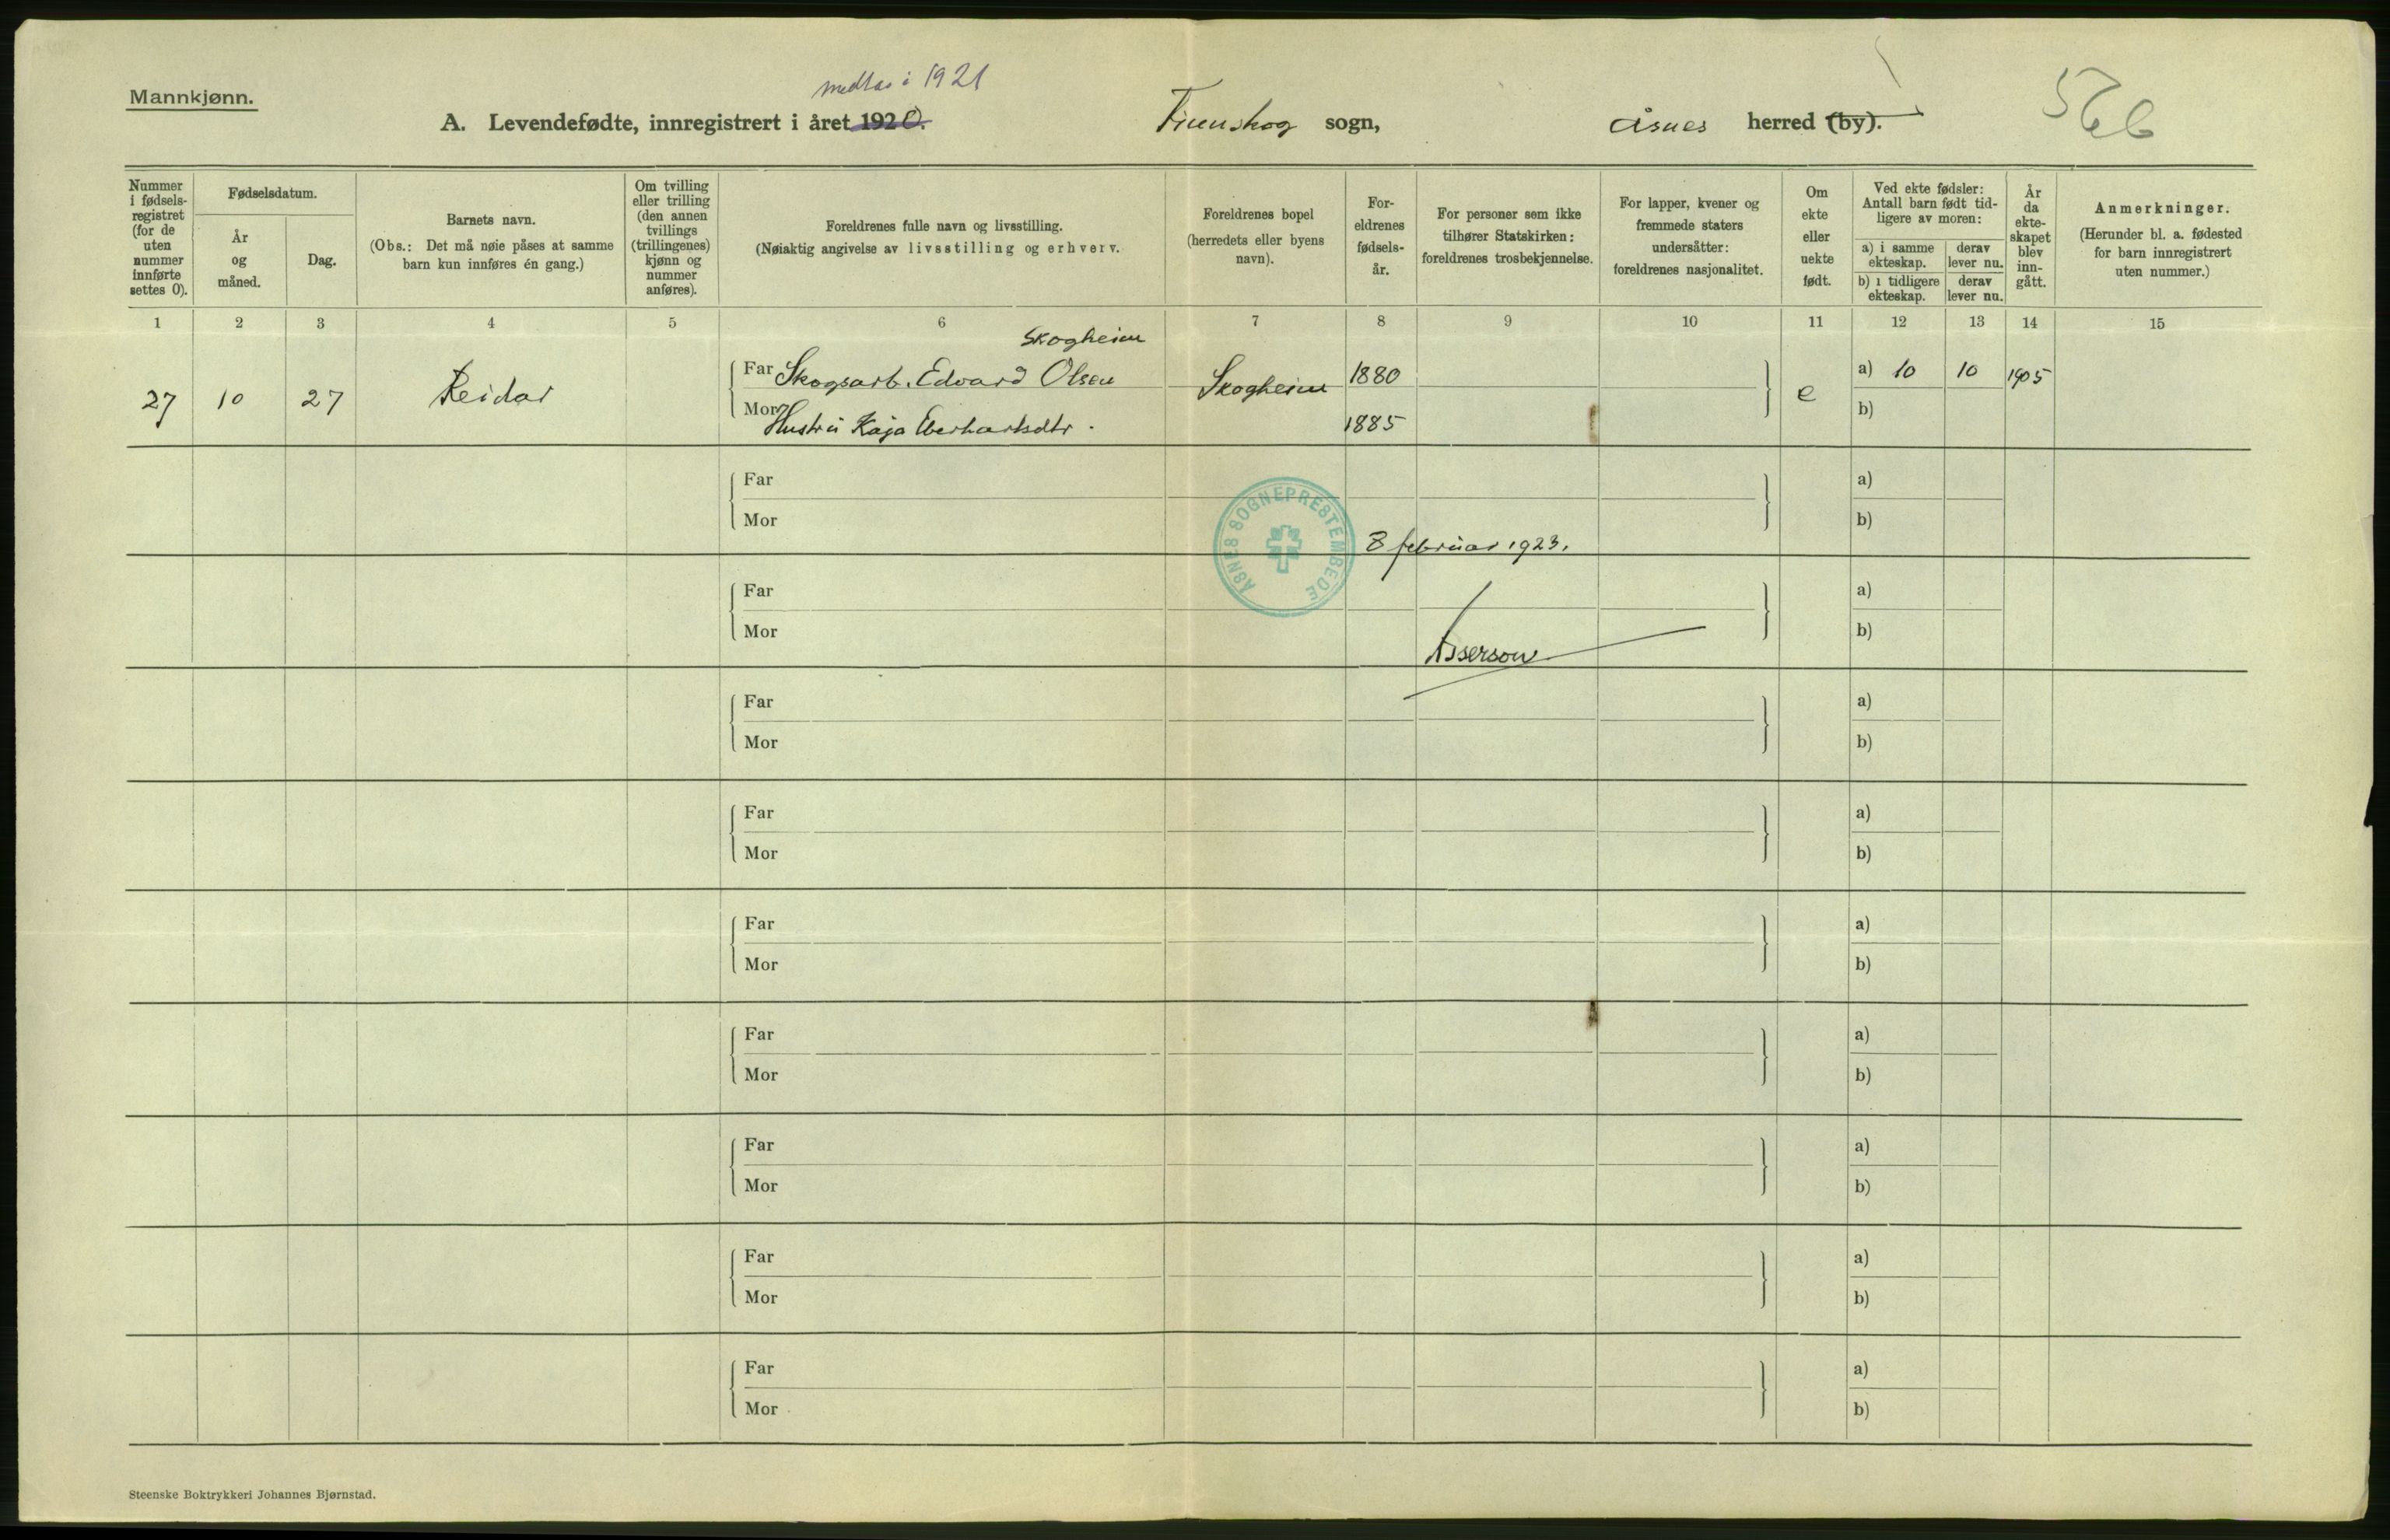 medtas i 1921
Mannkjønn.
A. Levendefødte, innregistrert i året 1920. Finnskog sogn, Åsnes herred (by).
Nummer i fødsels-registret (for de uten nummer innførte settes 0).
Fødselsdatum.
År og måned.
Dag.
Barnets navn.
(Obs.: Det må nøie påses at samme barn kun innføres én gang.)
Om tvilling eller trilling (den annen tvillings (trillingenes) kjønn og nummer anføres).
Foreldrenes fulle navn og livsstilling.
(Nøiaktig angivelse av livsstilling og erhverv.
Foreldrenes bopel (herredets eller byens navn).
For-eldrenes fødsels-år.
For personer som ikke tilhører Statskirken: foreldrenes trosbekjennelse.
For lapper, kvener og fremmede staters undersåtter: foreldrenes nasjonalitet.
Om ekte eller uekte født.
Ved ekte fødsler: Antall barn født tid-ligere av moren:
a) i samme ekteskap.
derav lever nu.
b) i tidligere ekteskap.
derav lever nu.
År da ekte-skapet blev inn-gått.
Anmerkninger.
(Herunder bl. a. fødested for barn innregistrert uten nummer.)
1 2 3 4 5 6 7 8 9 10 11 12 13 14 15
Skogheim
27 10 27 Reidar Far Skogsarb. Edvard Olsen Skogheim 1880 e a) 10 10 1905
Mor Hustru Kaja Eberhartsdtr. 1885 b)
Far a)
Mor b)
ÅSNES SOGNEPRESTEMBEDE
8 februar 1923.
Far a)
Mor b)
Asserson
Far a)
Mor b)
Far a)
Mor b)
Far a)
Mor b)
Far a)
Mor b)
Far a)
Mor b)
Far a)
Mor b)
Far a)
Mor b)
Steenske Boktrykkeri Johannes Bjørnstad.